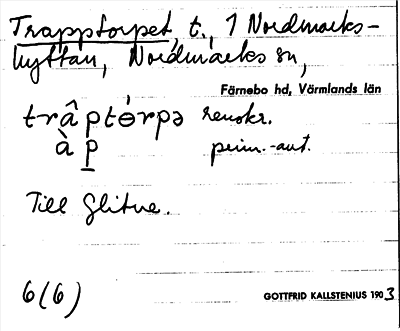 Trapptorpet, t., 1 Nordmarks-
hyttan, Nordmarks sn,
Färnebo hd, Värmlands län
trâptɵ̀rpə renskr.
à p prim.-ant.
Till Glitne.
6(6)
GOTTFRID KALLSTENIUS 1903